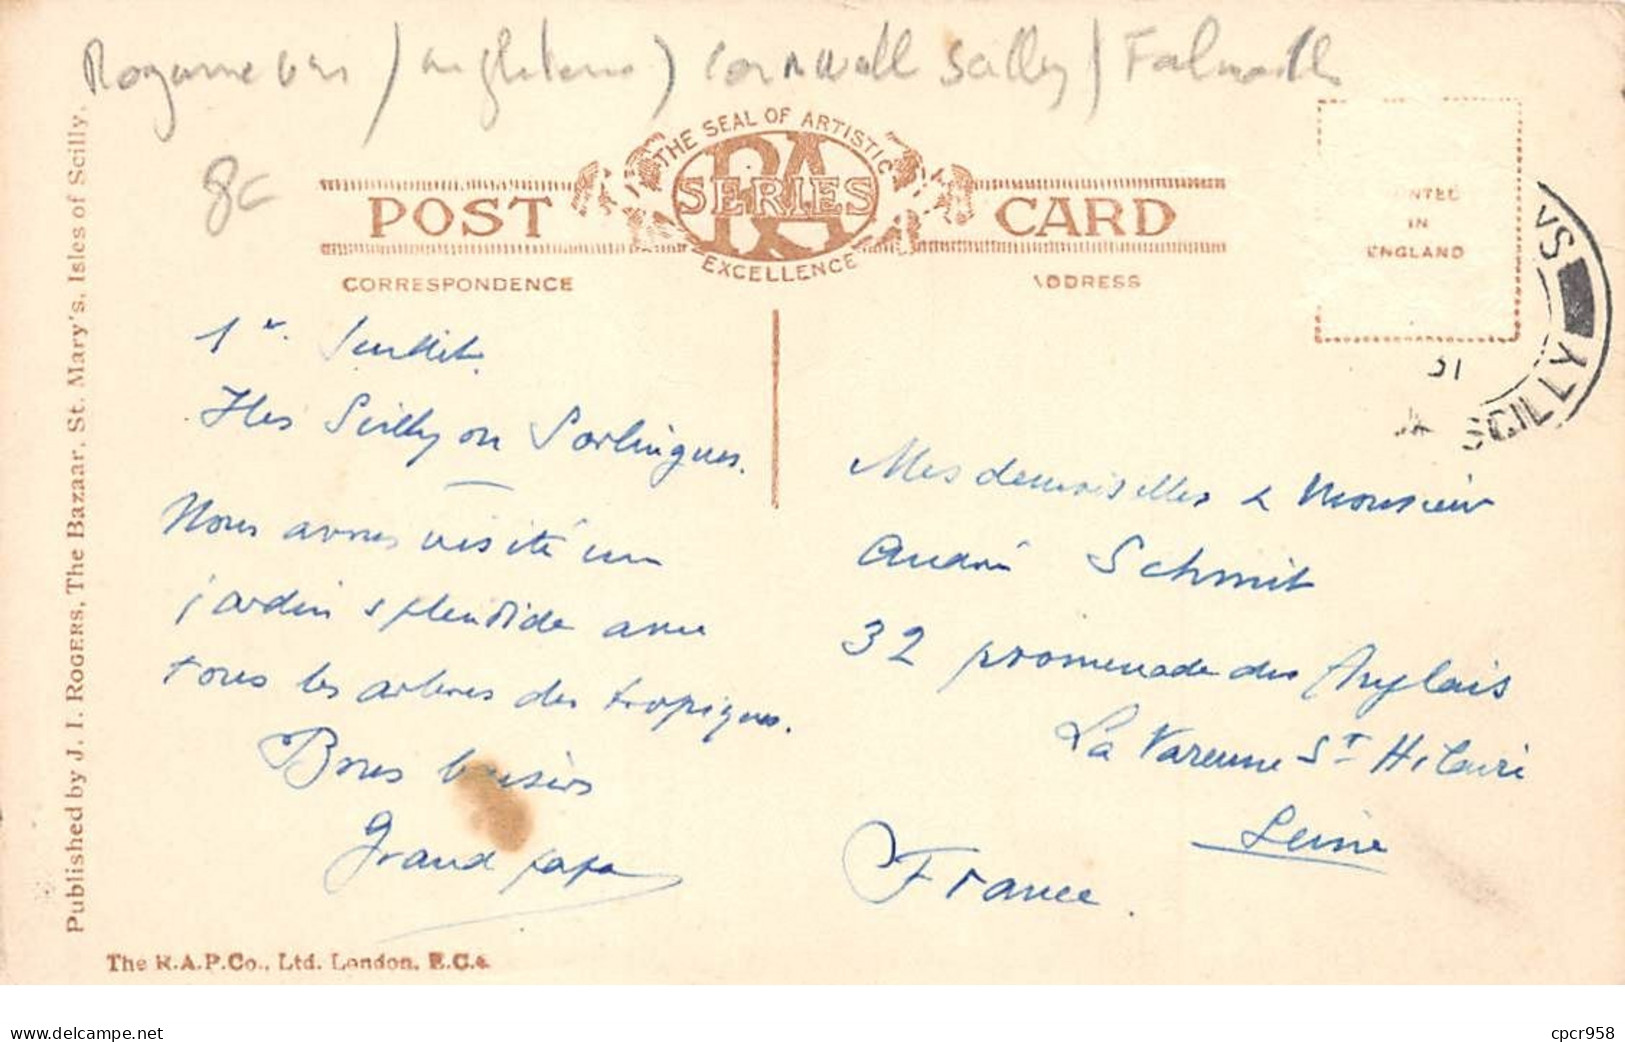 Royaume Uni / angleterre ) Cornwall Scilly / Falmouth
8c
THE SEAL OF ARTISTIC
RA
SERIES
EXCELLENCE
POST CARD
CORRESPONDENCE
ADDRESS
IN
ENGLAND
VS
51
SCILLY
1er Juillet.
Iles Scilly ou Sorlingues.
Nous avons visité un
jardin splendide avec
tous les arbres des tropiques.
Bons baisers
Grand papa
Mesdemoiselles & Monsieur
André Schmit
32 promenade des Anglais
La Varenne St Hilaire
Seine
France.
Published by J. I. ROGERS, The Bazaar, St. Mary's, Isles of Scilly.
The R.A.P. Co., Ltd. London. E.C.4.
www.delcampe.net
cpcr958